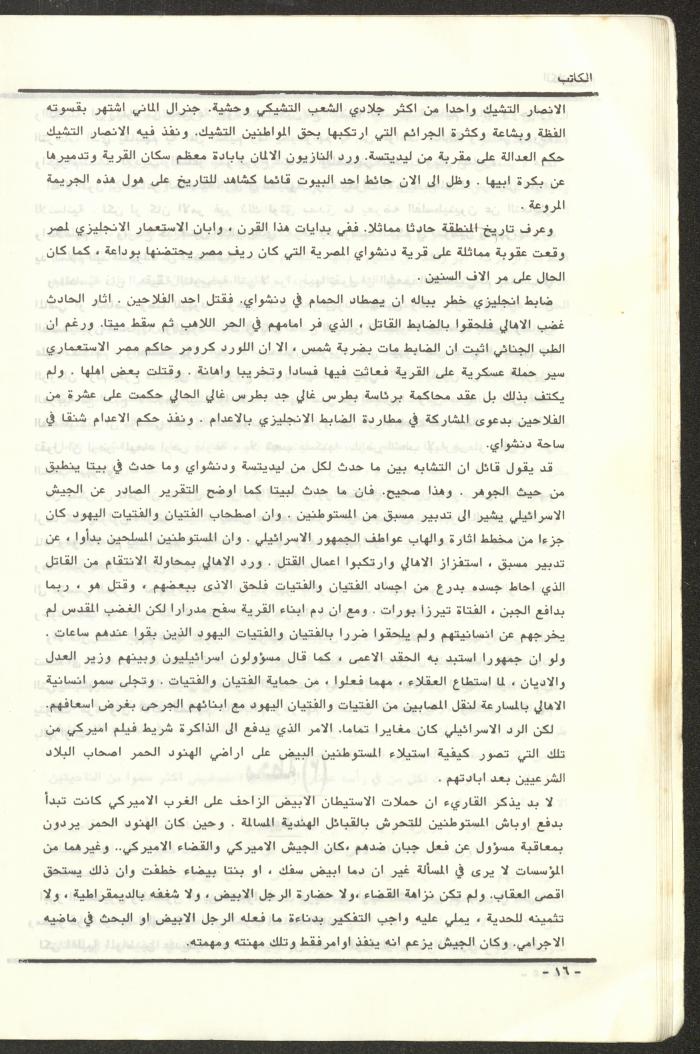 الكاتب
الانصار التشيك واحدا من اكثر جلادي الشعب التشيكي وحشية. جنرال الماني اشتهر بقسوته
الفظة وبشاعة وكثرة الجرائم التي ارتكبها بحق المواطنين التشيك. ونفذ فيه الانصار التشيك
حكم العدالة على مقربة من ليديتسة. ورد النازيون الالمان بابادة معظم سكان القرية وتدميرها
عن بكرة ابيها . وظل الى الان حائط احد البيوت قائما كشاهد للتاريخ على هول هذه الجريمة
المروعة .
وعرف تاريخ المنطقة حادثا مماثلا. ففي بدايات هذا القرن ، وابان الاستعمار الانجليزي لمصر
وقعت عقوبة مماثلة على قرية دنشواي المصرية التي كان ريف مصر يحتضنها بوداعة ، كما كان
الحال على مر الاف السنين .
ضابط انجليزي خطر بباله ان يصطاد الحمام في دنشواي. فقتل احد الفلاحين . اثار الحادث
غضب الاهالي فلحقوا بالضابط القاتل ، الذي فر امامهم في الحر اللاهب ثم سقط ميتا. ورغم ان
الطب الجنائي اثبت ان الضابط مات بضربة شمس ، الا ان اللورد كرومر حاكم مصر الاستعماري
سير حملة عسكرية على القرية فعاثت فيها فسادا وتخريبا واهانة . وقتلت بعض اهلها . ولم
يكتف بذلك بل عقد محاكمة برئاسة بطرس غالي جد بطرس غالي الحالي حكمت على عشرة من
الفلاحين بدعوى المشاركة في مطاردة الضابط الانجليزي بالاعدام . ونفذ حكم الاعدام شنقا في
ساحة دنشواي.
قد يقول قائل ان التشابه بين ما حدث لكل من ليديتسة ودنشواي وما حدث في بيتا ينطبق
من حيث الجوهر . وهذا صحيح. فان ما حدث لبيتا كما اوضح التقرير الصادر عن الجيش
الاسرائيلي يشير الى تدبير مسبق من المستوطنين . وان اصطحاب الفتيان والفتيات اليهود كان
جزءا من مخطط اثارة والهاب عواطف الجمهور الاسرائيلي . وان المستوطنين المسلحين بدأوا ، عن
تدبير مسبق ، استفزاز الاهالي وارتكبوا اعمال القتل . ورد الاهالي بمحاولة الانتقام من القاتل
الذي احاط جسده بدرع من اجساد الفتيان والفتيات فلحق الاذى ببعضهم ، وقتل هو ، ربما
بدافع الجبن ، الفتاة تيرزا بورات . ومع ان دم ابناء القرية سفح مدرارا لكن الغضب المقدس لم
يخرجهم عن انسانيتهم ولم يلحقوا ضررا بالفتيان والفتيات اليهود الذين بقوا عندهم ساعات .
ولو ان جمهورا استبد به الحقد الاعمى ، كما قال مسؤولون اسرائيليون وبينهم وزير العدل
والاديان ، لما استطاع العقلاء ، مهما فعلوا ، من حماية الفتيان والفتيات . وتجلى سمو انسانية
الاهالي بالمسارعة لنقل المصابين من الفتيات والفتيان اليهود مع ابنائهم الجرحى بغرض اسعافهم.
لكن الرد الاسرائيلي كان مغايرا تماما. الامر الذي يدفع الى الذاكرة شريط فيلم اميركي من
تلك التي تصور كيفية استيلاء المستوطنين البيض على اراضي الهنود الحمر اصحاب البلاد
الشرعيين بعد ابادتهم .
لا بد يذكر القاريء ان حملات الاستيطان الابيض الزاحف على الغرب الاميركي كانت تبدأ
بدفع اوباش المستوطنين للتحرش بالقبائل الهندية المسالمة . وحين كان الهنود الحمر يردون
بمعاقبة مسؤول عن فعل جبان ضدهم ،كان الجيش الاميركي والقضاء الاميركي.. وغيرهما من
المؤسسات لا يرى في المسألة غير ان دما ابيض سفك ، او بنتا بيضاء خطفت وان ذلك يستحق
اقصى العقاب. ولم تكن نزاهة القضاء ،ولا حضارة الرجل الابيض ، ولا شغفه بالديمقراطية ، ولا
تثمينه للحدية ، يملي عليه واجب التفكير بدناءة ما فعله الرجل الابيض او البحث في ماضيه
الاجرامي. وكان الجيش يزعم انه ينفذ اوامرفقط وتلك مهنته ومهمته.
- ١٦ -